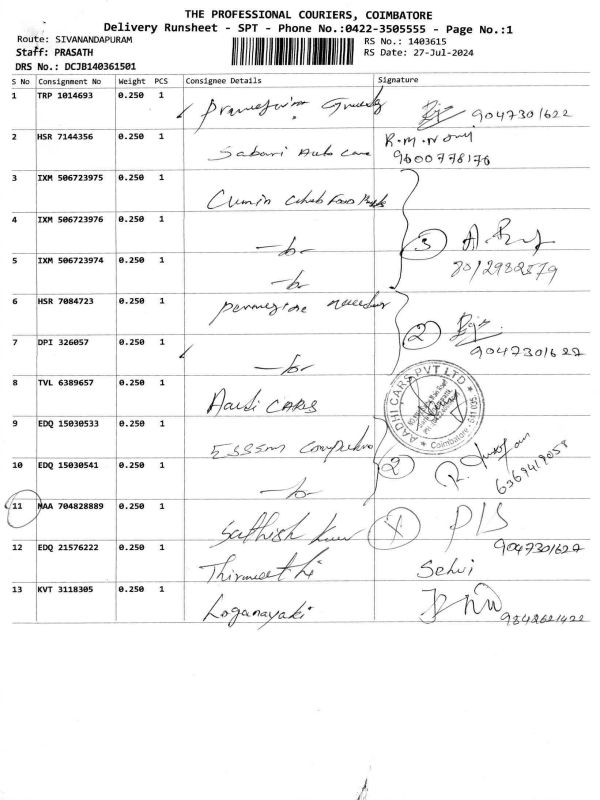 THE PROFESSIONAL COURIERS, COIMBATORE
Delivery Runsheet - SPT - Phone No.:0422-3505555 - Page No.:1
Route: SIVANANDAPURAM RS No.: 1403615
Staff: PRASATH RS Date: 27-Jul-2024
DRS No.: DCJB140361501
S No Consignment No Weight PCS Consignee Details Signature
1 TRP 1014693 0.250 1 9047301622
2 HSR 7144356 0.250 1 Sabari Auto Care R.M.N 9600778176
3 IXM 506723975 0.250 1 Cumin
4 IXM 506723976 0.250 1 3
5 IXM 506723974 0.250 1 8012982879
6 HSR 7084723 0.250 1 2
7 DPI 326057 0.250 1 9047301622
8 TVL 6389657 0.250 1 Aadi CARS
AADHI CARS PVT LTD
Coimbatore - 641 035
9 EDQ 15030533 0.250 1
10 EDQ 15030541 0.250 1 2 6369419058
11 MAA 704828889 0.250 1 Sathish 9047301622
12 EDQ 21576222 0.250 1 Selvi
13 KVT 3118305 0.250 1 Loganayaki 9842621422